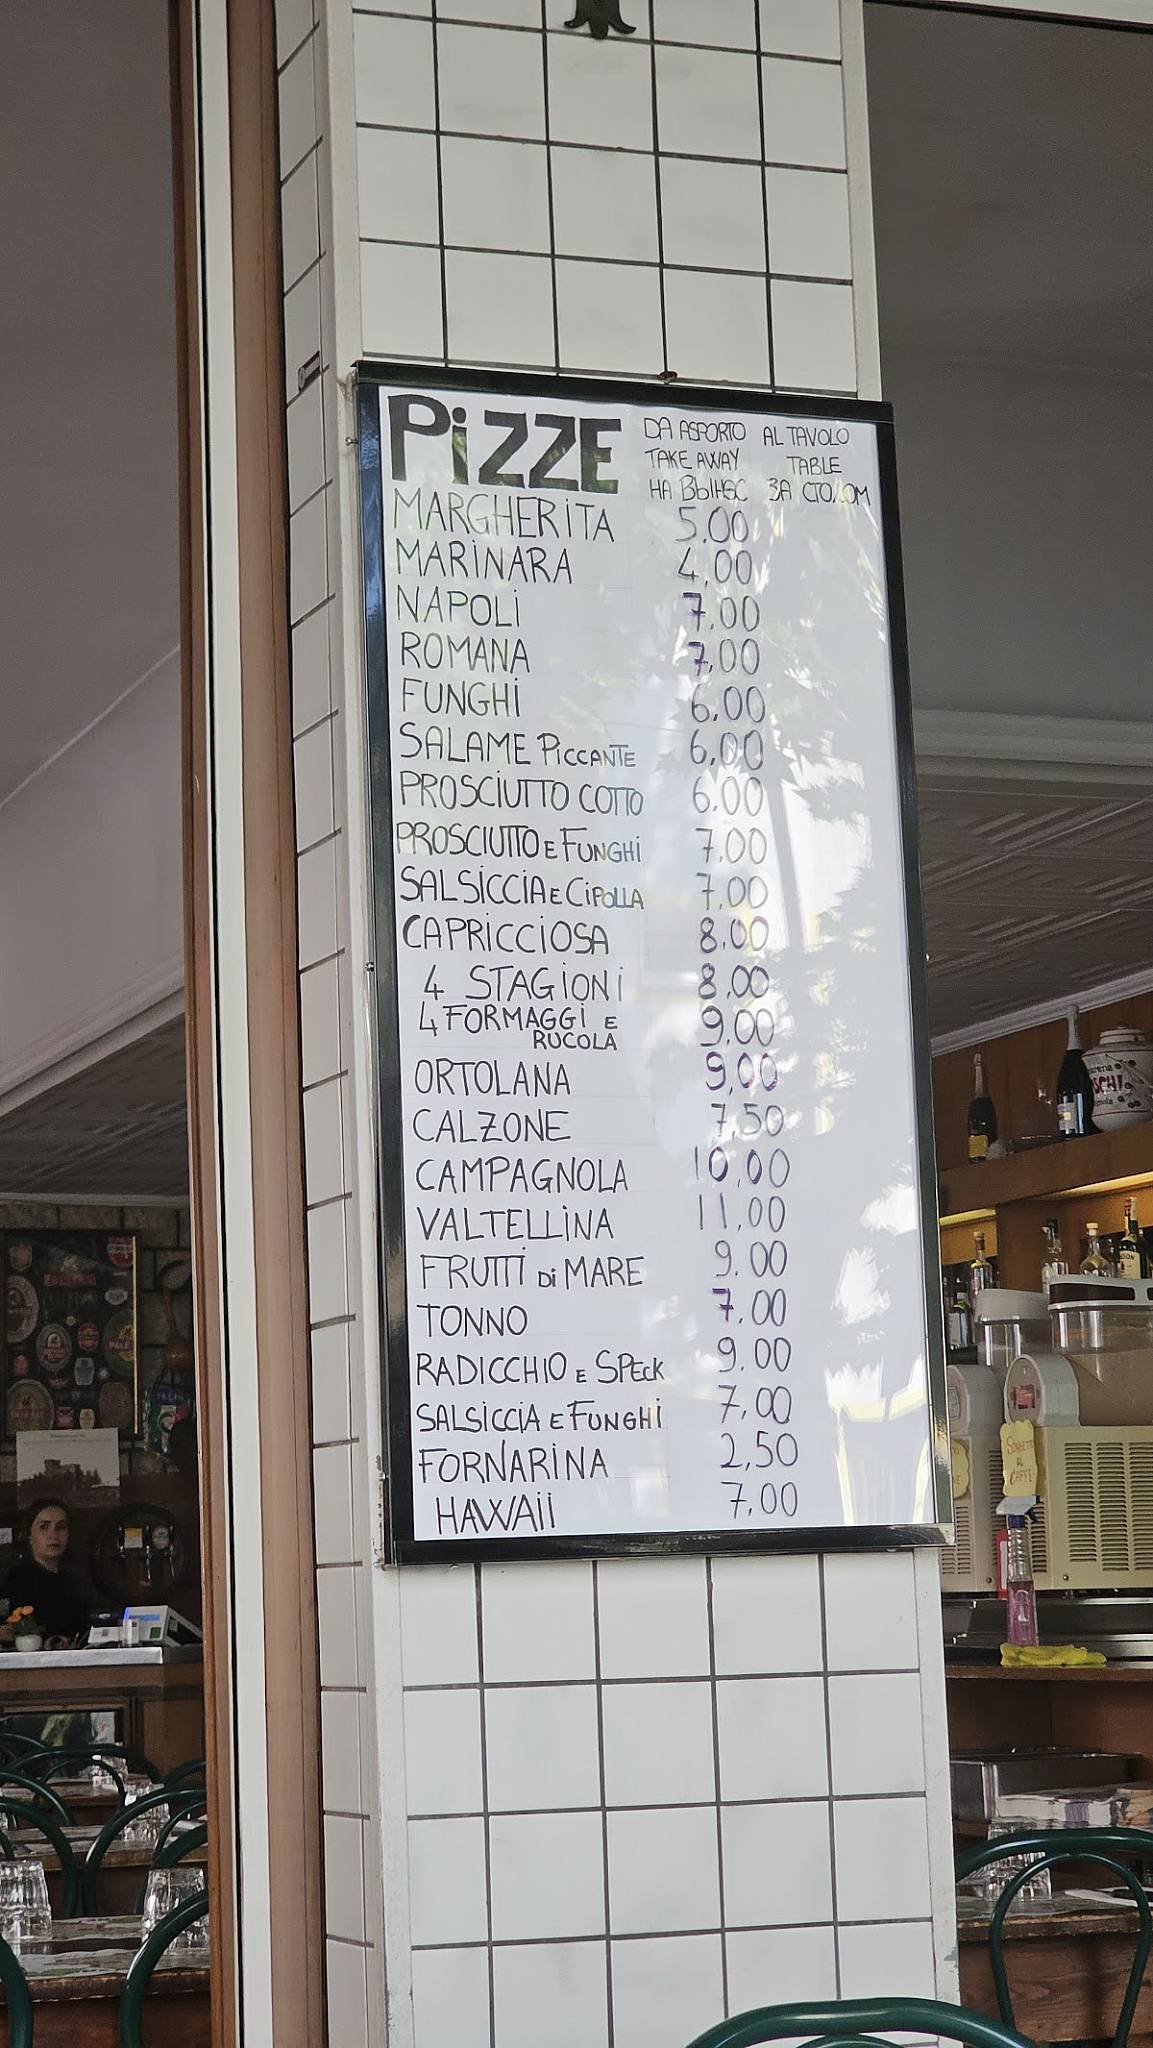 PiZZE
DA ASPORTO AL TAVOLO
TAKE AWAY TABLE
НА ВЫНОС ЗА СТОЛОМ
MARGHERITA 5.00
MARINARA 4,00
NAPOLI 7.00
ROMANA 7,00
FUNGHI 6,00
SALAME PICCANTE 6,00
PROSCIUTTO COTTO 6.00
PROSCIUTTO E FUNGHI 7.00
SALSICCIA E CIPOLLA 7,00
CAPRICCIOSA 8.00
4 STAGIONI 8,00
4 FORMAGGI E RUCOLA 9,00
ORTOLANA 9,00
CALZONE 7,50
CAMPAGNOLA 10,00
VALTELLINA 11,00
FRUTTI Di MARE 9.00
TONNO 7.00
RADICCHIO E SPECK 9.00
SALSICCIA E FUNGHI 7,00
FORNARINA 2,50
HAWAII 7,00
SORBETTO
AL
CAFFE